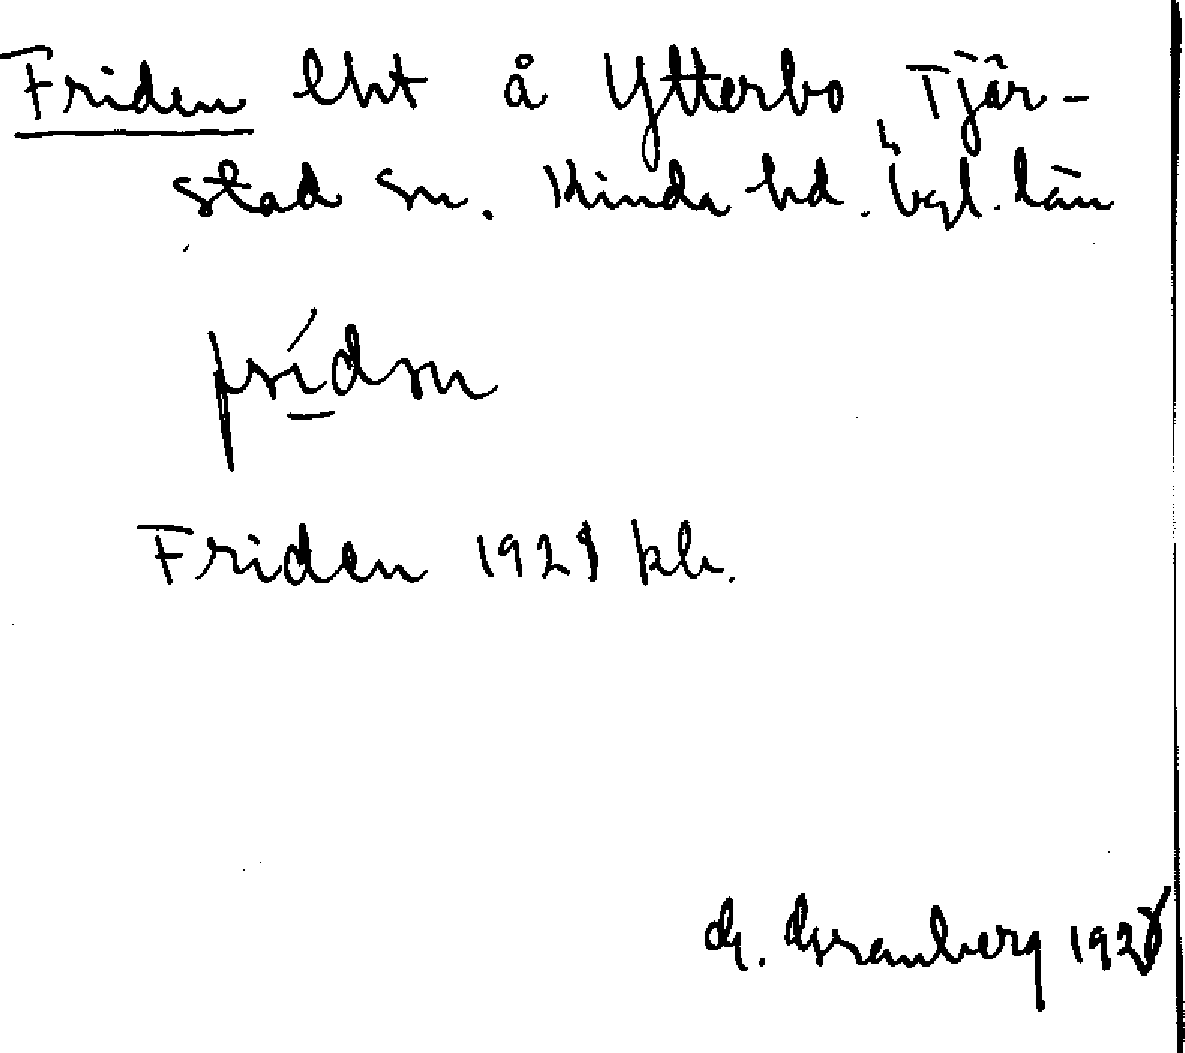 Friden lht å Ytterbo Tjär-
stad sn. Kinda hd. Ögl. län
frídn
Friden 1928 kb.
G. Granberg 1928